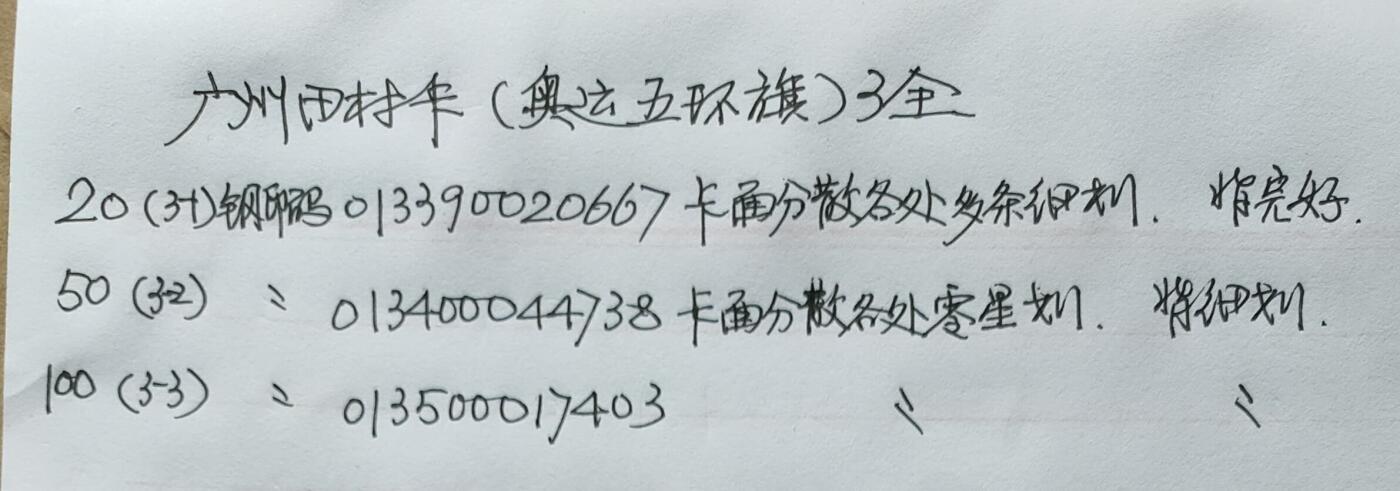 广州田村卡(奥运五环旗)3全
20(3-1)钢印码013390020667卡面分散各处多条细划. 背完好.
50(3-2) 〃 013400044738卡面分散各处零星划. 背细划.
100(3-3) 〃 013500017403 〃 〃